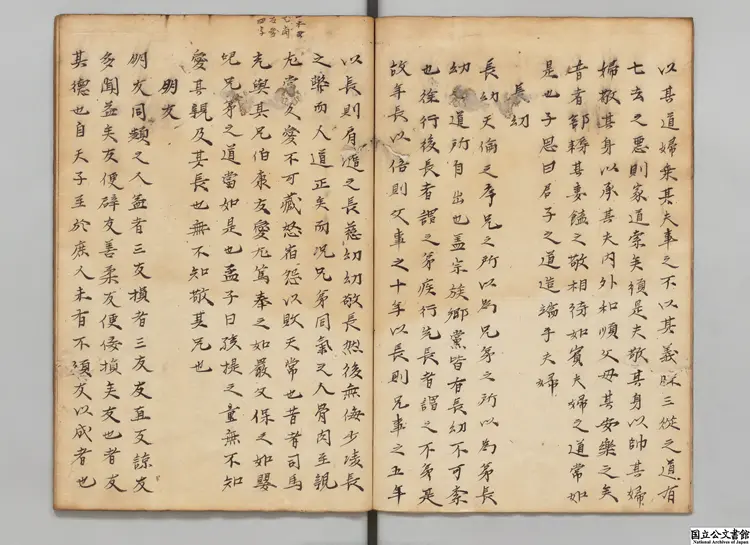 以其道婦乘其夫事之不以其義昧三從之道有
七去之惡則家道索矣須是夫敬其身以帥其婦
婦敬其身以承其夫內外和順父母其安樂之矣
昔者郤耨其妻饁之敬相待如賓夫婦之道常如
是也子思曰君子之道造端乎夫婦
長幼
長幼天倫之序兄之所以爲兄弟之所以爲弟長
幼之道所自出也盖宗族鄕黨皆有長幼不可紊
也徐行後長者謂之弟疾行先長者謂之不弟是
故年長以倍則父事之十年以長則兄事之五年
以長則肩隨之長慈幼幼敬長然後無侮少凌長
之弊而人道正矣而况兄弟同氣之人骨肉至親
尤當友愛不可藏怒宿怨以敗天常也昔者司馬
光與其兄伯康友愛尤篤奉之如嚴父保之如嬰
兒兄弟之道當如是也孟子曰孩提之童無不知
愛其親及其長也無不知敬其兄也
朋友
朋友同類之人益者三友損者三友友直友諒友
多聞益矣友便辟友善柔友便侫損矣友也者友
其德也自天子至於庶人未有不須友以成者也
国立公文書館
National Archives of Japan